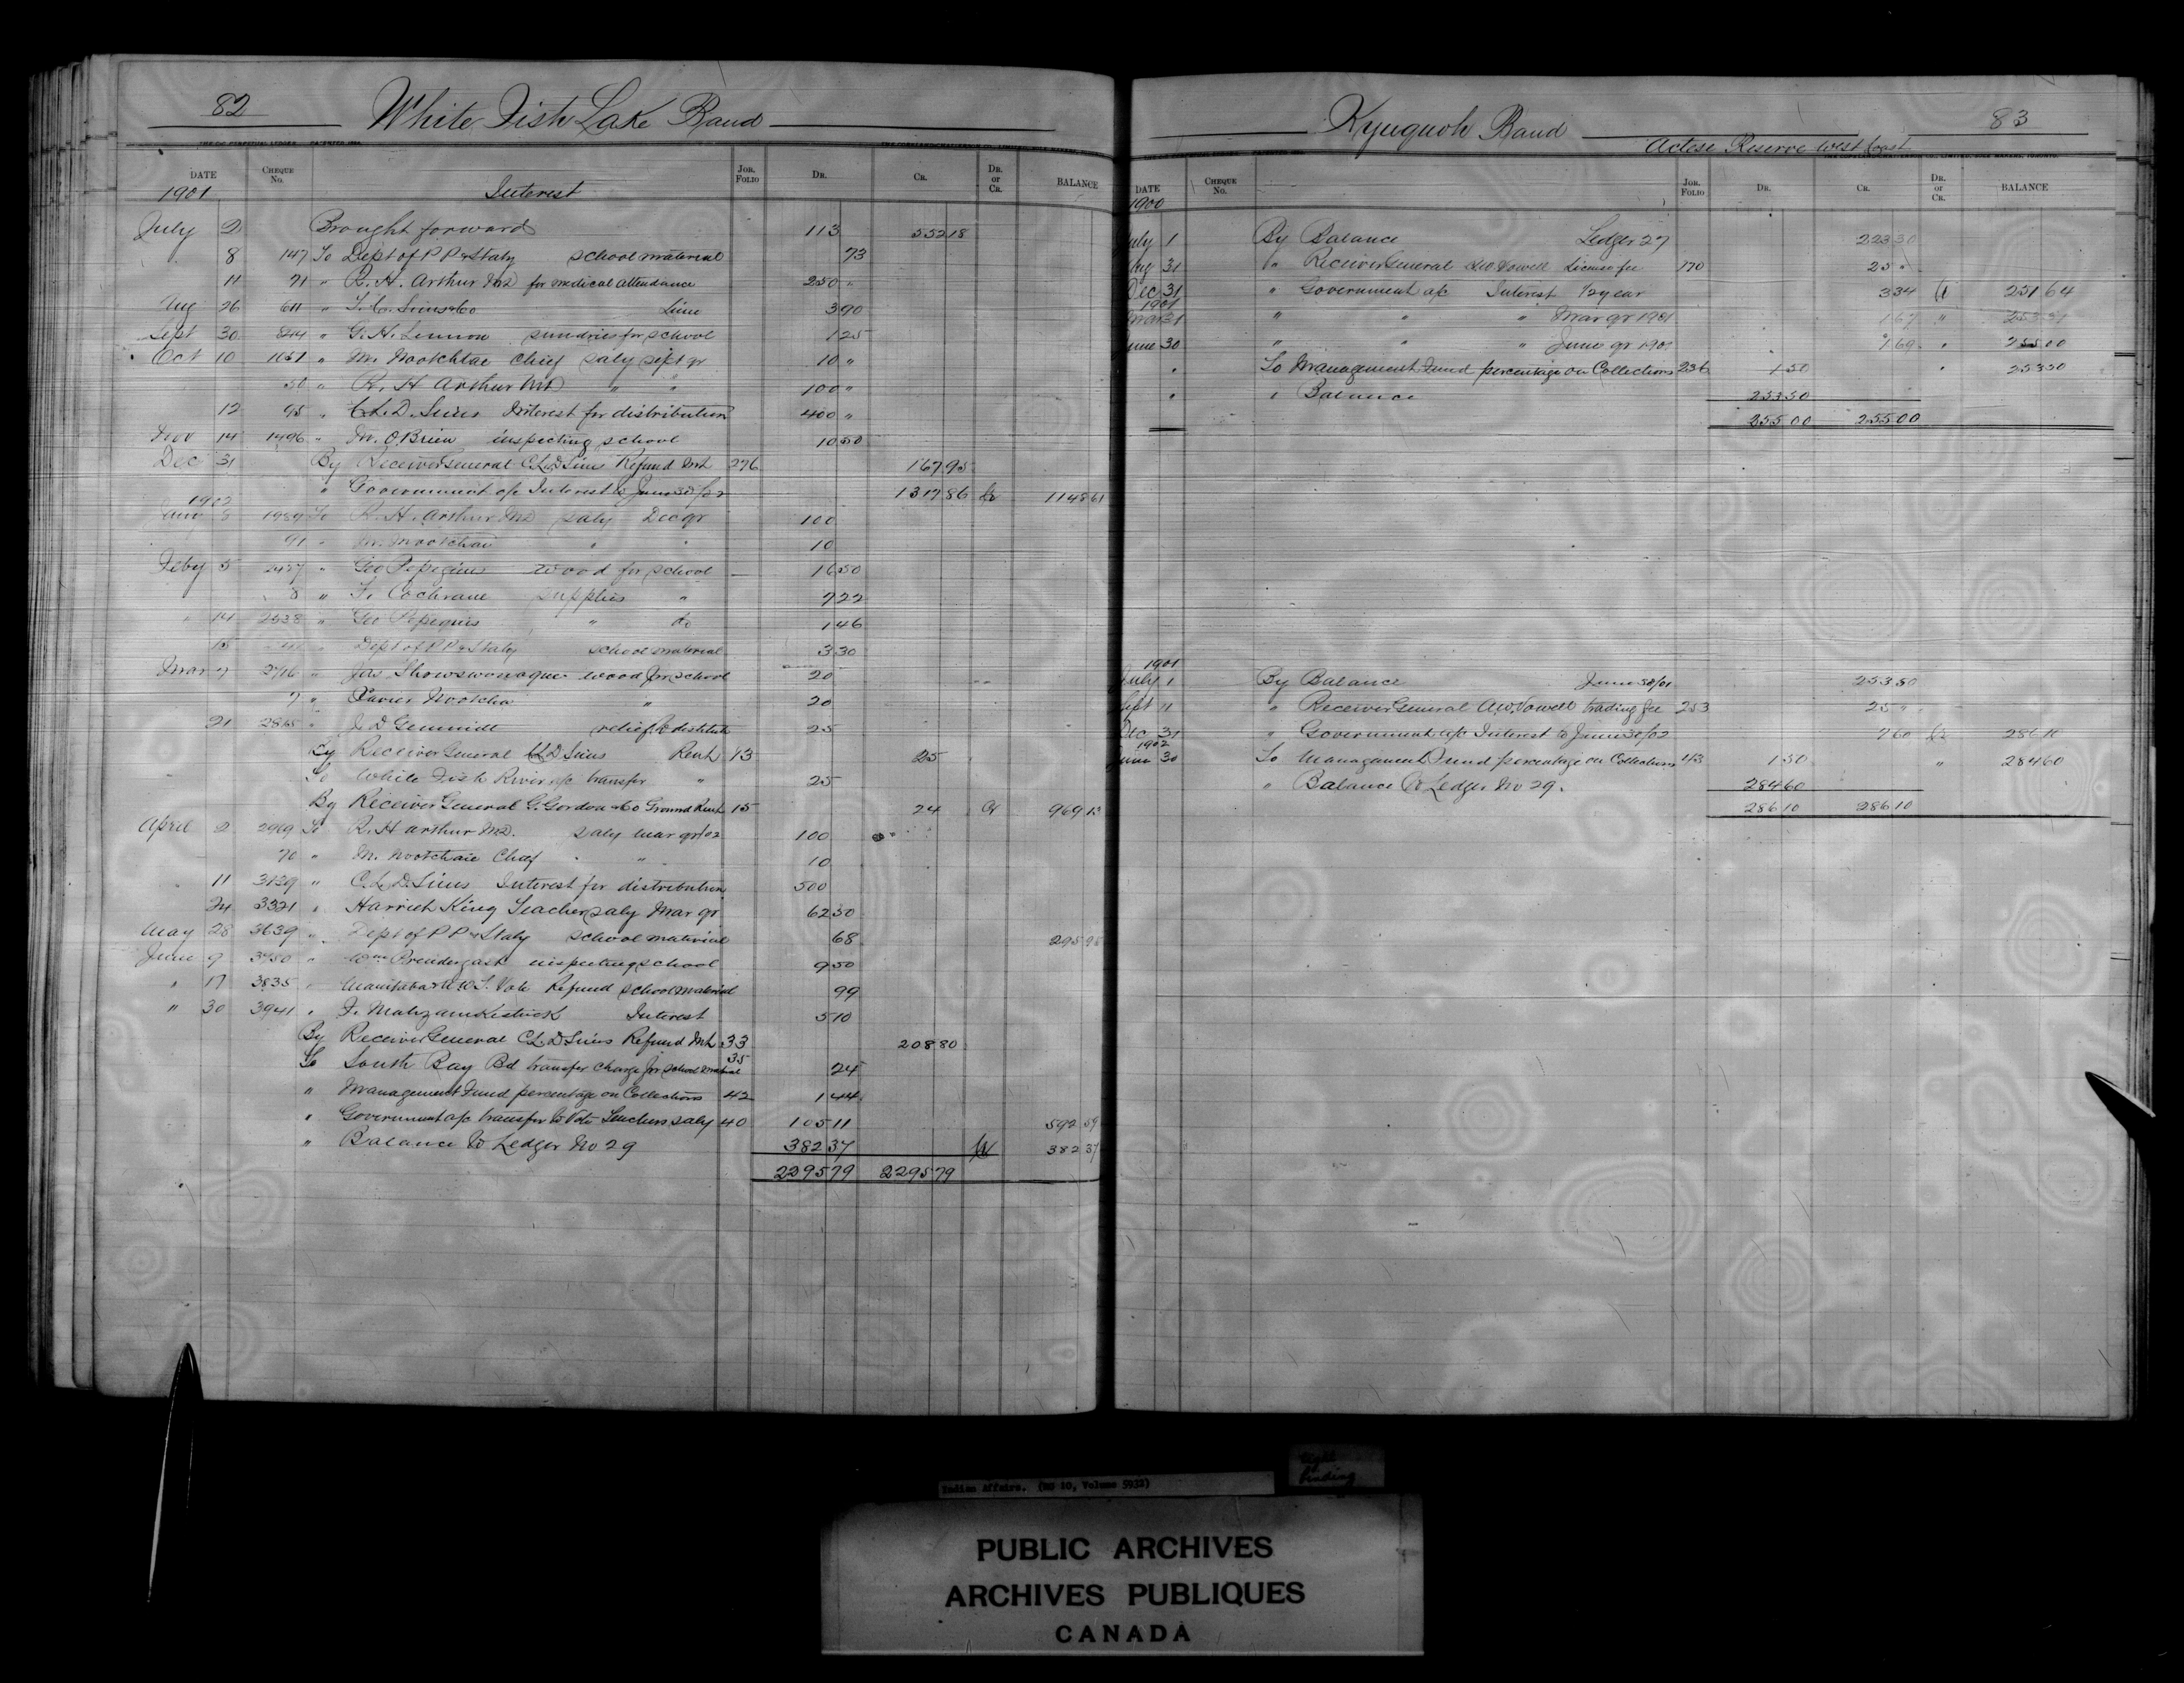 82
White Fish Lake Band
DATE CHEQUE No. JOR. FOLIO DR. CR. DR. or CR. BALANCE
1901 Interest
July 2 Brought forward 113 552 18
8 147 To Dept of P P & Staty school material 73
11 71 " R. H. Arthur MD for medical attendance 250 "
Aug 26 611 " Lime 3 90
Sept 30 844 " G. H. Lennon sundries for school 1 25
Oct 10 1051 " M. Nootchtai Chief saly Sept qr 10 "
50 " R. H Arthur MD " " 100 "
12 95 " C.L.D. Sims Interest for distribution 400 "
Nov 14 1496 " M. O'Brien inspecting school 10 50
Dec 31 By Receiver General C.L.D Sims Refund Int 276 167 95
" Government a/c Interest to June 30/02 1317 86 Cr 1148 61
1902
Jany 8 1989 To R. H. Arthur MD saly Dec qr 100
91 " M. Nootchtai " " 10
Feby 5 2457 " Geo Pepequis wood for school 16 50
8 " F. Cochrane supplies " 7 22
" 14 2538 " Geo Pepequis " do 1 46
15 " Dept of P P & Staty school material 3 30
Mar 7 2716 " Jas Showswonoque wood for school 20
7 " Xavier Nootcha " 20
21 2865 " J. D Gemmill relief to destitute 25
By Receiver General C.L.D Sims Rent 13 25
To White Fish River a/c transfer " 25
By Receiver General G. Gordon & Co Ground Rent 15 24 Cr 969 13
April 2 2969 To R. H Arthur MD. saly Mar qr/02 100
70 " M. Nootchtaie Chief " " 10
11 3139 " C.L.D. Sims Interest for distribution 500
24 3321 " Harriet King Teacher saly Mar qr 62 50
May 28 3639 " Dept of P P & Staty school material 68 295 95
June 9 3780 " Wm Prendergast inspecting school 9 50
" 17 3835 " Manitoba & N W T. Vote Refund school material 99
" 30 3941 " Interest 5 10
By Receiver General C.L.D Sims Refund Int 33 208 80
To South Bay Bd transfer charge for school material 35 24
" Management Fund percentage on Collections 42 1 44
" Government a/c transfer to Vote Teachers saly 40 105 11 592 59
" Balance to Ledger No 29 382 37 Cr 382 37
2295 79 2295 79
Kyuquoh Band
83
Actese Reserve West Coast
DATE CHEQUE No. JOR. FOLIO DR. CR. DR. or CR. BALANCE
1900
July 1 By Balance Ledger 27 223 30
Aug 31 " Receiver General Vowell License fee 170 25 "
Dec 31 " Government a/c Interest 1/2 year 3 34 Cr 251 64
1901
Mar 31 " " " Mar qr 1901 1 67 " 253 31
June 30 " " " June qr 1901 1 69 " 255 00
" To Management Fund percentage on Collections 236 1 50 " 253 50
" " Balance 253 50
255 00 255 00
1901
July 1 By Balance June 30/01 253 50
Sept 11 " Receiver General A.W. Vowell trading fee 253 25 "
Dec 31 " Government a/c Interest to June 30/02 7 60 Cr 286 10
1902
June 30 To Management Fund percentage on Collections 43 1 50 " 284 60
" Balance to Ledger No 29. 284 60
286 10 286 10
Indian Affairs. (RG 10, Volume 5932)
tight
binding
PUBLIC ARCHIVES
ARCHIVES PUBLIQUES
CANADA